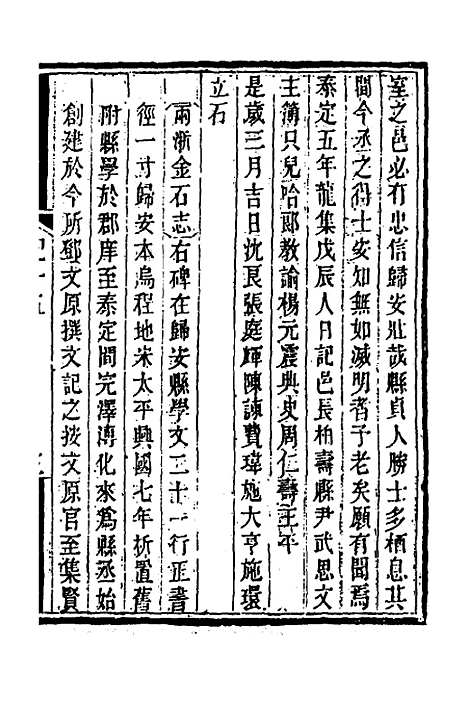 室之邑必有忠信歸安壯哉縣眞人勝士多栖息其
間今丞之得士安知無如滅明者予老矣願有聞焉
泰定五年龍集戊辰人日記邑長柏壽縣尹武思文
主簿只兒哈郎教諭楊元震典史周仁壽王平
是歲三月吉日沈良張庭暉陳諫費瑋施大亨施環
立石
兩浙金石志右碑在歸安縣學文二十一行正書
徑一寸歸安本烏程地宋太平興國七年析置舊
附縣學於郡庠至泰定間完澤溥化來爲縣丞始
創建於今所鄧文原撰文記之按文原官至集賢